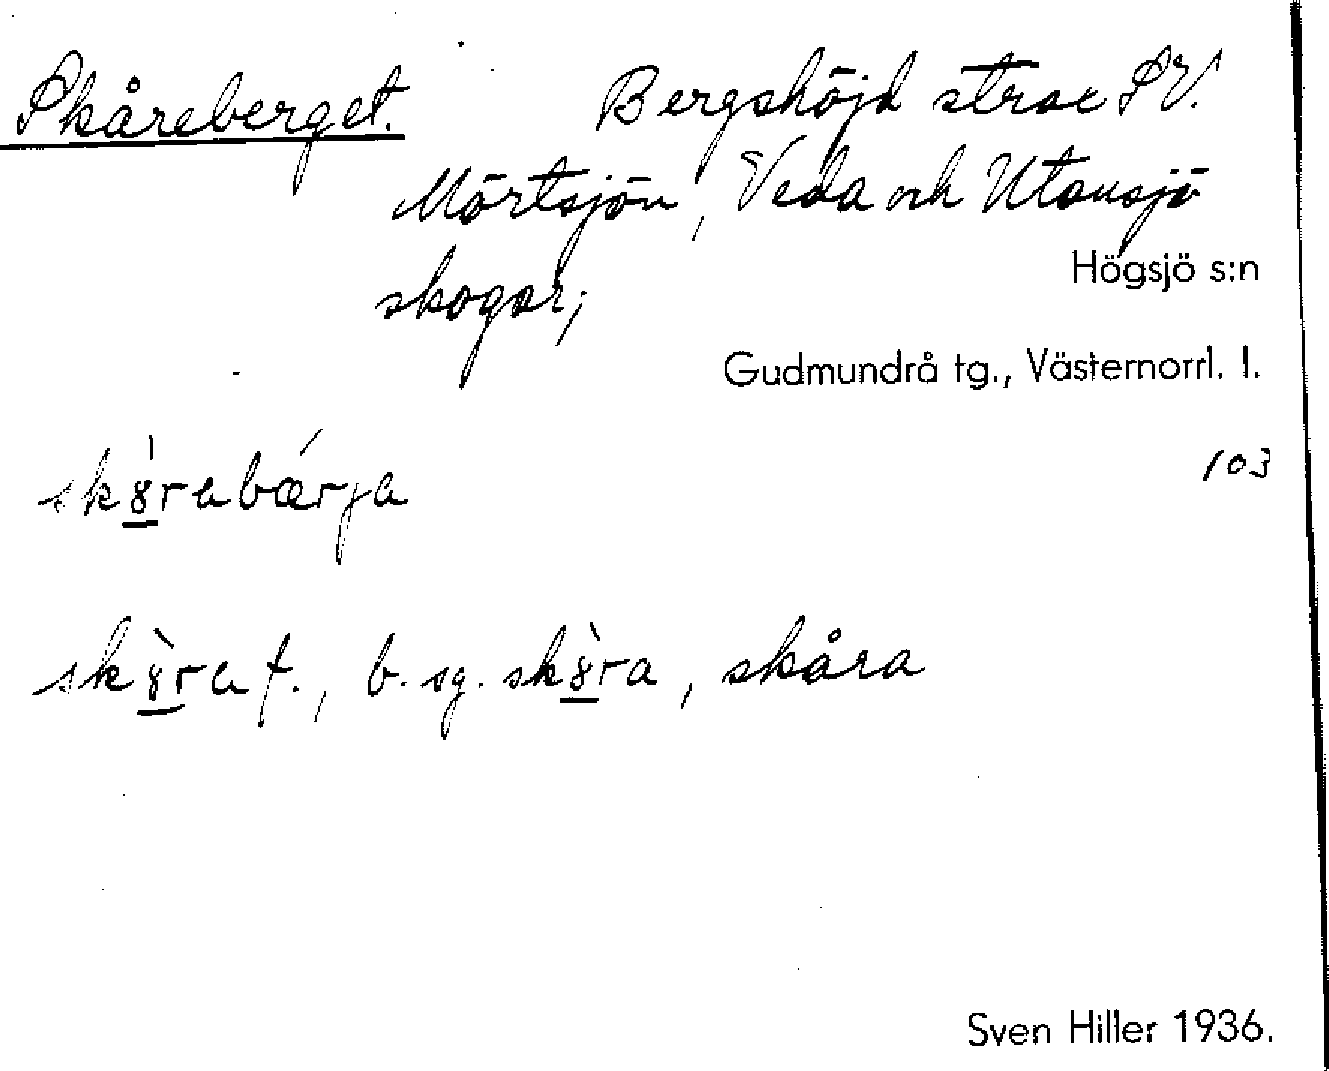 Skåreberget. Bergshöjd strax SV.
Mörtsjön, Veda och Utansjö
skogar;
Högsjö s:n
Gudmundrå tg., Västernorrl. l.
103
skȣ̀rabǽrja
skȣ̀ra f., b. sg. skȣ̀ra, skåra
Sven Hiller 1936.